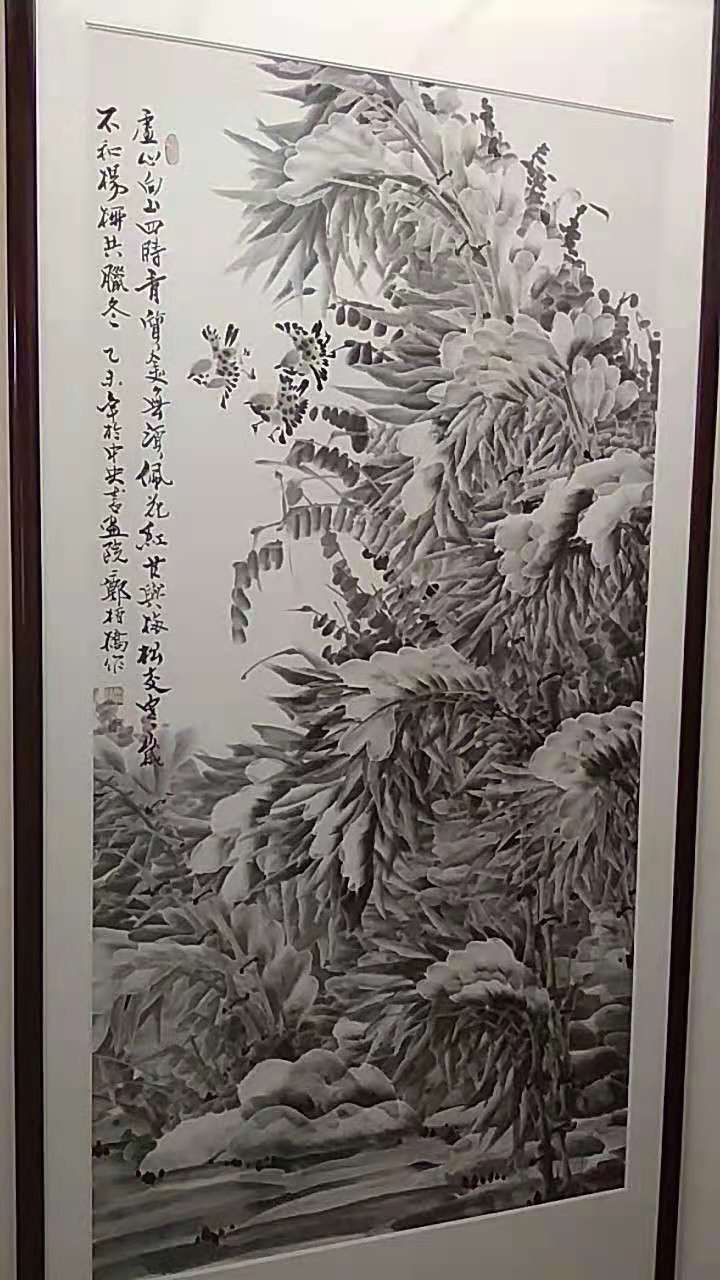 虛心向上四時青質無須佩花紅甘與梅松交寒歲
不和楊柳共臘冬 乙未年於中央書畫院 鄭橋作